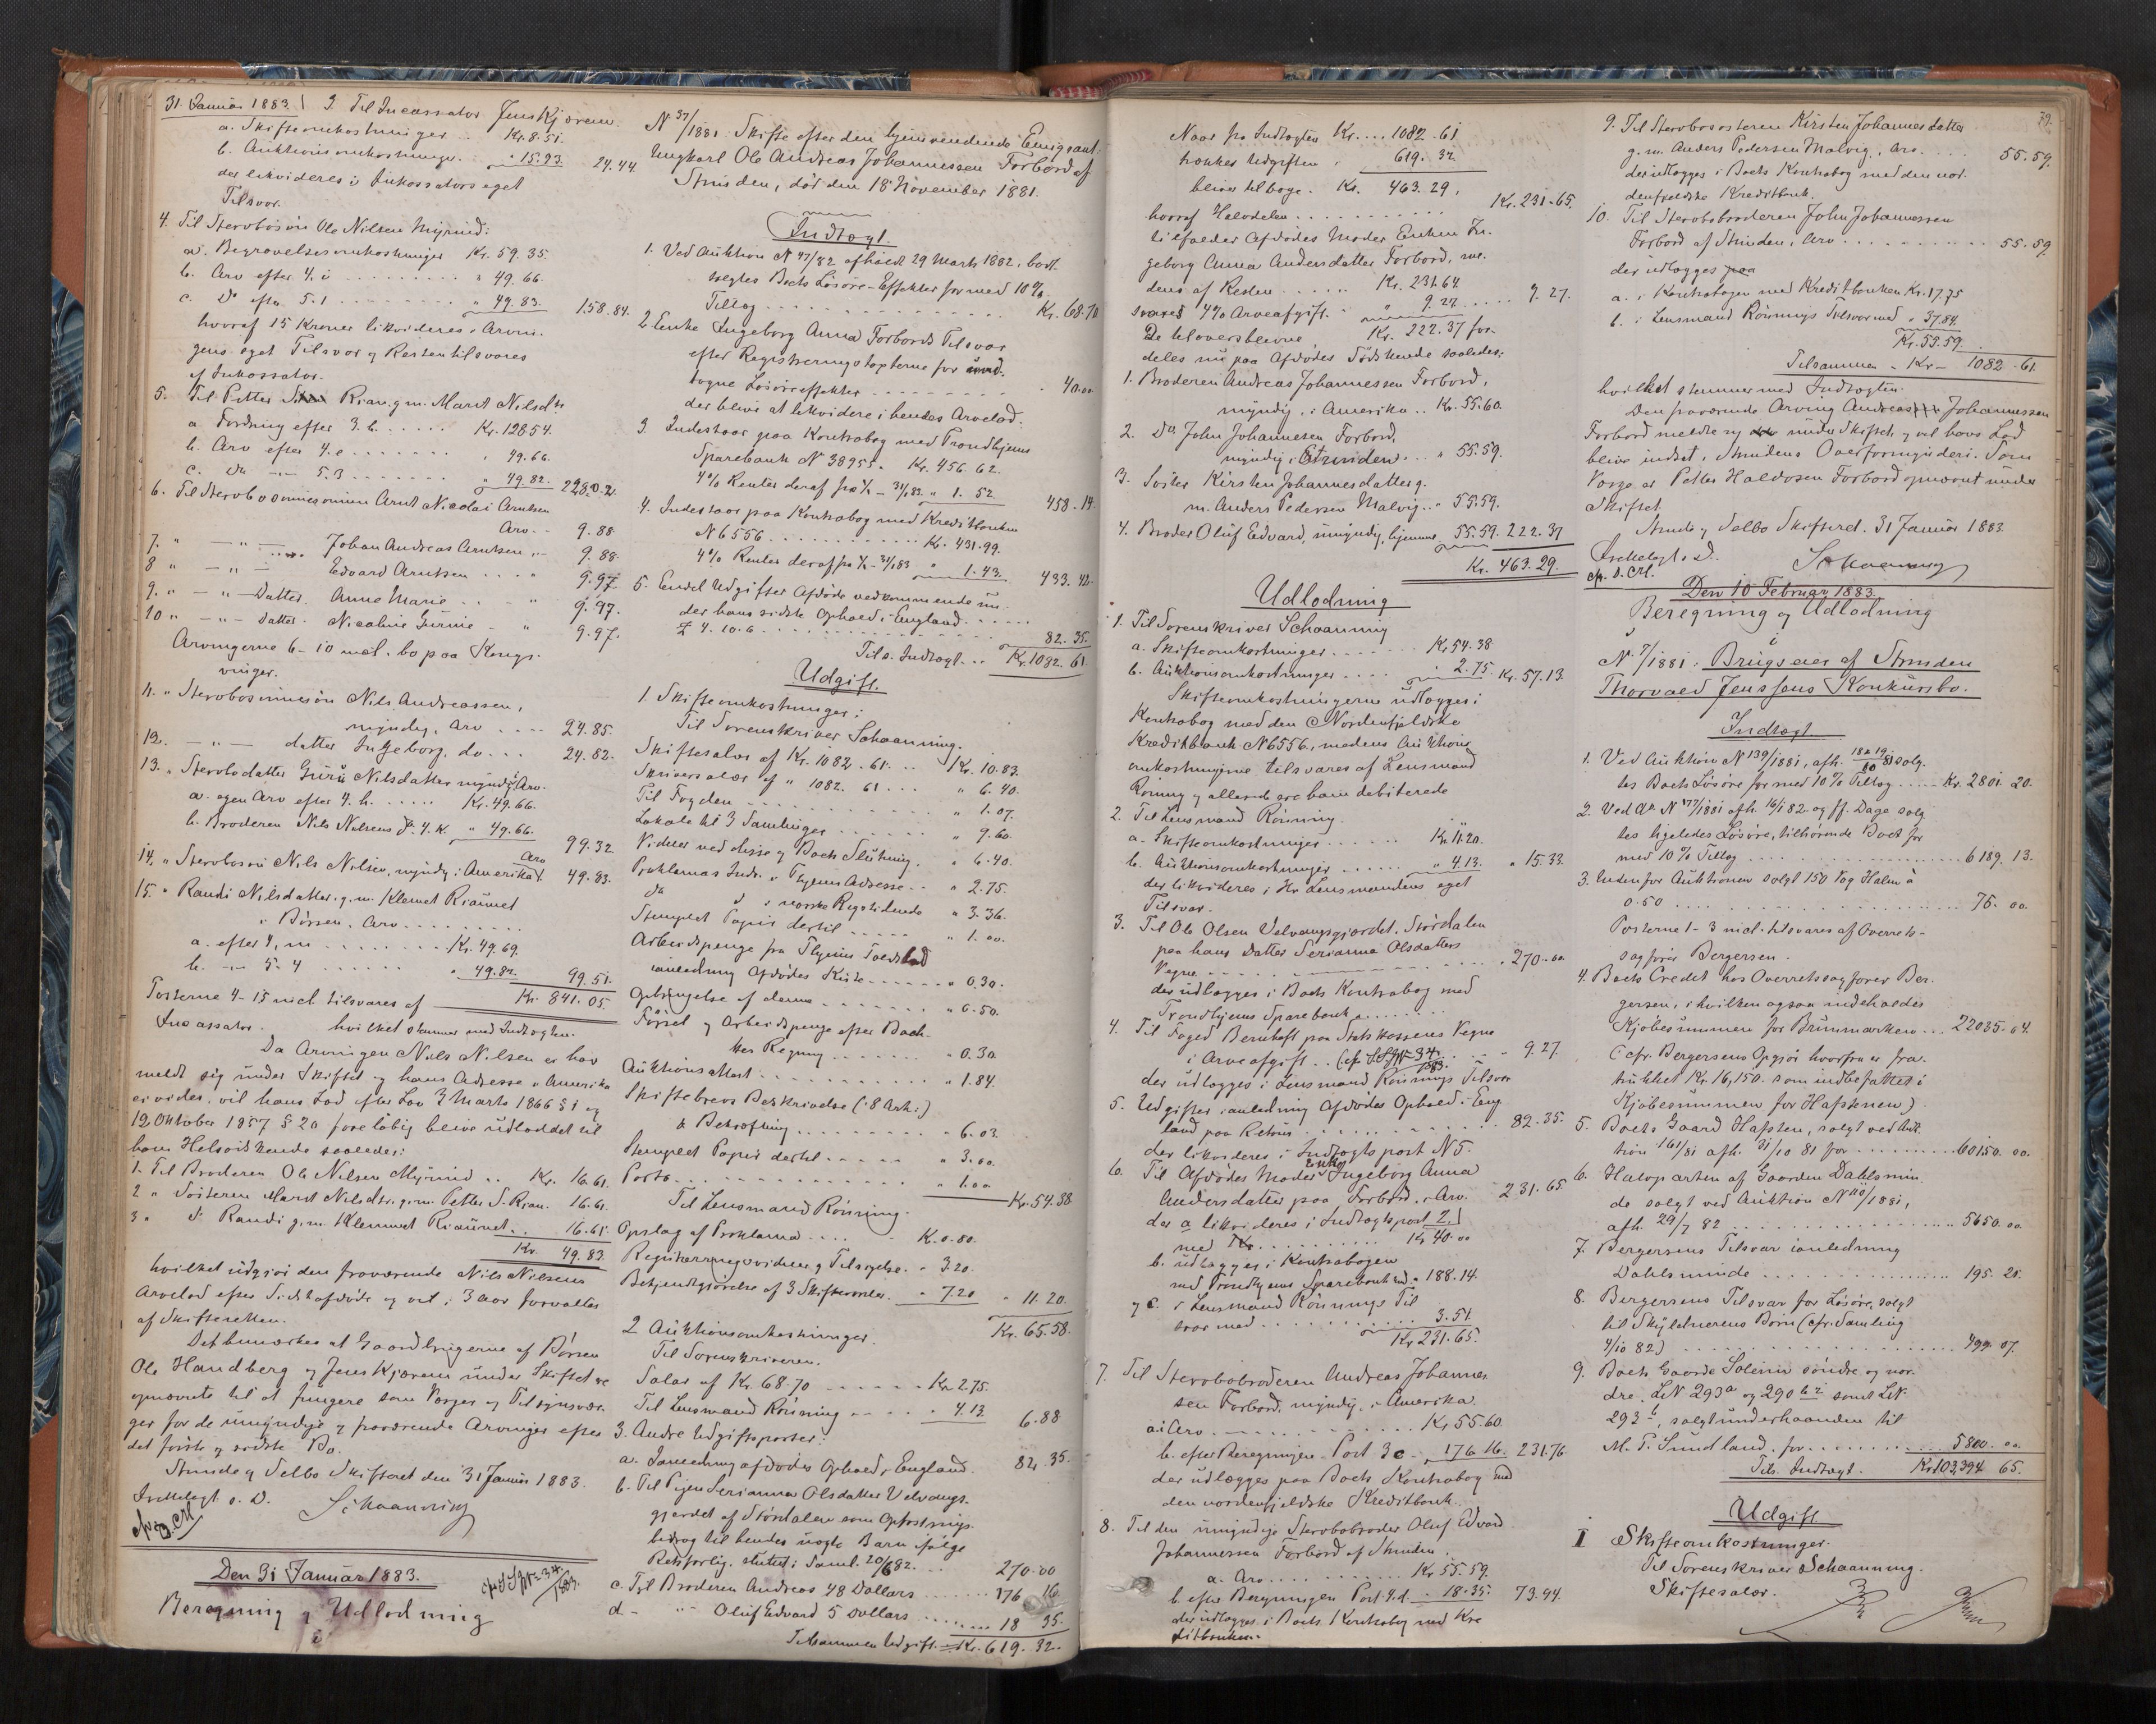 31. Januar 1883. 3. Til Incassator Jens Kjørem.
a. Skifteomkostninger .. Kr. 8.51.
b. Auktionsomkostninger. " 15.93. 24.44.
der likvideres i Inkassators eget
Tilsvar.
4. Til Stervbosøn Ole Nilsen Myrind:
a. Begravelsesomkostninger Kr. 59.35.
b. Arv efter 4. i " 49.66.
c. Do efter 5.1 " 49.83. 158.84.
hvoraf 15 Kroner likvideres i Arvin-
gens eget Tilsvar og Resten tilsvares
af Inkassator.
5. Til Petter Rian, g. m. Marit Nilsdtr
a. Fordring efter 3. b. Kr. 128.54.
b. Arv efter 4. e " 49.66.
c. Do — 5.3 " 49.82. 228.02.
6. Til Stervbosønnesønnen Arnt Nicolai Arntsen
Arv. 9.88.
7. " — " — Johan Andreas Arntsen " 9.88.
8 " — " — Edvard Arntsen " 9.97.
9. " — " — Datter Anne Marie " 9.97.
10 " — " — datter Nicoline Gurine " 9.97.
Arvingerne 6–10 incl. bo paa Kongs-
vinger.
11. " Stervbosønnesøn Nils Andreassen,
myndig, Arv 24.85.
12. — " — datter Ingeborg, do 24.82.
13. " Stervbodatter Guru Nilsdatter myndig Arv.
a. egen Arv efter 4. h. Kr. 49.66.
b. Broderen Nils Nilsens Do. 4. k. " 49.66. 99.32
14. " Stervbosøn Nils Nilsen, myndig i Amerika Arv 49.83.
15. " Randi Nilsdatter g. m. Klemet Riaunet
i Børsen, Arv
a. efter 4, m Kr. 49.69.
b. — 5.4 " 49.82 99.51.
Posterne 4–15 incl tilsvares af Kr. 841.05.
Incassator. hvilket stemmer med Indtægten.
Da Arvingen Nils Nilsen ei har
meldt sig under Skiftet og hans Adresse i Amerika
ei vides, vil hans Lod efter Lov 3 Marts 1866 § 1 og
12 Oktober 1857 § 20 foreløbig blive udloddet til
hans Helsødskende saaledes:
1. Til Broderen Ole Nilsen Myrind .. Kr. 16.61.
2 " Søsteren Marit Nilsdtr. g. m. Petter S. Rian. 16.61.
3 " Do Randi g. m. Klemmet Riaunet .. 16.61.
Kr. 49.83.
hvilket udgjør den fraværende Nils Nilsens
Arvelod efter Sidstafdøde og vil i 3 Aar forvaltes
af Skifteretten.
Det bemærkes at Gaardbrugerne af Børsen
Ole Handberg og Jens Kjørem under Skiftet ere
opnævnte til at fungere som Værger og Tilsynsvær-
ger for de umyndige og fraværende Arvinger efter
det første og sidste Bo.
Strinde og Selbo Skifteret den 31 Januar 1883.
Schaanning
Den 31 Januar 1883.
Beregning og Udlodning
i
N 37/1881. Skifte efter den hjemvendende Emigrant
Ungkarl Ole Andreas Johannessen Forbord af
Strinden, død den 18 November 1881.
Indtægt.
1. Ved Auktion N 47/82 afholdt 29 Marts 1882, bort-
solgtes Boets Løsøre-Effekter for med 10%
Tillæg Kr. 68.70
2. Enke Ingeborg Anna Forbords Tilsvar
efter Registreringstaxterne for und-
tagne Løsøreffekter " 40.00
der blive at likvidere i hendes Arvelod.
3. Indestaar paa Kontrabog med Trondhjems
Sparebank N 38955. Kr. 456.62.
4% Renter deraf fra 1/1 – 31/1 83 " 1.52. 458.14.
4. Indestaar paa Kontrabog med Kreditbanken
N 6556 Kr. 431.99.
4% Renter deraf fra 1/1 – 31/1 83 " 1.43. 433.42.
5. Endel Udgifter Afdøde vedkommende un-
der hans sidste Ophold i England
£ 4.10.6 82.35.
Tils. Indtægt... Kr. 1082.61.
Udgift.
1. Skifteomkostninger:
Til Sorenskriver Schaanning.
Skiftesalær af Kr. 1082.61. Kr. 10.83.
Skriversalær af " 1082.61 " 6.40.
Til Fogden " 1.07.
Lokale til 3 Samlinger " 9.60.
Vidner ved disse og Boets Slutning. " 6.40.
Proklamas Indr. i Thjems Adresse " 2.75.
do do i norske Rigstidende " 3.36.
Stemplet Papir dertil " 1.00.
Arbeidspenge fra Thjems Toldsted
i anledning Afdødes Kiste " 0.30.
Opbringelse af denne " 0.50.
Førsel og Arbeidspenge efter Bach-
kes Regning " 0.30
Auktionsattest " 1.84.
Skiftebrevs Beskrivelse (8 Ark:)
& Bekræftning " 6.03.
Stemplet Papir dertil " 3.00.
Porto " 1.00
Kr. 54.38.
Til Lensmand Rønning.
Opslag af Proklama K. 0.80.
Registreringsvidner og Tilsigelse. " 3.20.
Bekjendtgjørelse af 3 Skiftesamler. " 7.20 " 11.20.
Kr. 65.58.
2 Auktionsomkostninger.
Til Sorenskriveren.
Salær af Kr. 68.70 Kr. 2.75.
Til Lensmand Rønning " 4.13. 6.88
3. Andre Udgiftsposter:
a. I anledning afdødes Ophold i England. 82.35.
b. Til Pigen Serianna Olsdatter Velvangs-
gjerdet af Størdalen som Opfostrings-
bidrag til hendes uægte Barn ifølge
Retsforlig, sluttet i Saml. 20/6 82. 270.00
c. Til Broderen Andreas 48 Dollars 176 16
d. - " Oluf Edvard 5 Dollars 18 35.
Tilsammen Udgift. Kr. 619.32.
Naar fra Indtægten Kr. 1082.61
trækkes Udgiften " 619.32.
bliver tilbage. Kr. 463.29.
hvoraf Halvdelen Kr. 231.65.
tilfalder Afdødes Moder Enken In-
geborg Anna Andersdatter Forbord, me-
dens af Resten Kr. 231.64
svares 4% Arveafgift. " 9.27. 9.27.
De tiloversblevne Kr. 222.37 for-
deles nu paa Afdødes Sødskende saaledes:
1. Broderen Andreas Johannessen Forbord,
myndig, i Amerika .. Kr. 55.60.
2. Do John Johannesen Forbord,
myndig i Strinden " 55.59.
3. Søster Kirsten Johannesdatter g.
m. Anders Pedersen Malvig. " 55.59.
4. Broder Oluf Edvard, umyndig, hjemme 55.59. 222.37
Kr. 463.29.
Udlodning
1. Til Sorenskriver Schaanning
a. Skifteomkostninger Kr. 54.38
b. Auktionsomkostninger " 2.75 Kr. 57.13.
Skifteomkostningerne udlægges i
Kontrabog med den Nordenfjeldske
Kreditbank N 6556, medens Auktions-
omkostningerne tilsvares af Lensmand
Rönning og allerede ere ham debiterede
2. Til Lensmand Rönning.
a. Skifteomkostninger Kr. 11.20.
b. Auktionsomkostninger " 4.13. " 15.33.
der likvideres i Hr. Lensmandens eget
Tilsvar.
3. Til Ole Olsen Velvangsgjærdet, Størdalen
paa hans Datter Serianna Olsdatters
Vegne " 270.00
der udlægges i Boets Kontrabog med
Trondhjems Sparebank.
4. Til Foged Bernhoft paa Statskassens Vegne
i Arveafgift .. " 9.27.
der udlægges i Lensmand Rönnings Tilsvar
5. Udgifter i anledning Afdødes Ophold i Eng-
land paa Retour 82.35.
der likvideres i Indtægtspost N 5.
6. Til Afdødes Moder Enke Ingeborg Anna
Andersdatter paa Forbord, i Arv. 231.65
der a likvideres i Indtægtspost 2.
med Kr. 40.00
b. udlægges i Kontrabogen
med Trondhjems Sparebank med " 188.14.
og c. i Lensmand Rönnings Til-
svar med 3.51
Kr. 231.65.
7. Til Stervbobroderen Andreas Johannes-
sen Forbord, myndig, i Amerika
a. i Arv Kr. 55.60.
b. efter Beregningen Post 3 c. 176.16. 231.76.
der udlægges paa Boets Kontrabog med
den nordenfjeldske Kreditbank.
8. Til den umyndige Stervbobroder Oluf Edvard
Johannessen Forbord af Strinden.
a. Arv Kr. 55.59.
b. efter Beregningen Post 3. d. " 18.35. 73.94.
der udlægges i Boets Kontrabog med Kre-
ditbanken.
79.
9. Til Stervbosøsteren Kirsten Johannesdatter
g. m. Anders Pedersen Malvig, Arv. 55.59.
der udlægges i Boets Kontrabog med den nor-
denfjeldske Kreditbank.
10. Til Stervbobroderen John Johannessen
Forbord af Strinden, Arv 55.59.
der udlægges paa
a. i Kontrabogen med Kreditbanken Kr. 17.75
b. i Lensmand Rönnings Tilsvar med " 37.84.
Kr. 55.59.
Tilsammen Kr. 1082.61.
hvilket stemmer med Indtægten.
Den fraværende Arving Andreas Johannessen
Forbord meldte sig under Skiftet og vil hans Lod
blive indsat i Strindens Overformynderi. Som
Værge er Petter Haldosen Forbord opnævnt under
Skiftet.
Strinde og Selbo Skifteret. 31 Januar 1883.
Schaanning
Den 10 Februar 1883.
Beregning og Udlodning
i
N. 7/1881. Brugseier af Strinden
Thorvald Jenssens Konkursbo.
Indtægt
1. Ved Auktion N 139/1881, afh. 18 & 19/10 81 solg-
tes Boets Løsøre for med 10% Tillæg Kr. 2801.20.
2. Ved do N 177/1881 afh. 16/1 82 og ff. Dage solg-
tes ligeledes Løsøre, tilhørende Boet for
med 10% Tillæg 6189.13.
3. Udenfor Auktionen solgt 150 Vog Halm à
0.50 75.00.
Posterne 1–3 incl. tilsvares af Overrets-
sagfører Bergersen.
4. Boets Credit hos Overretssagfører Ber-
gersen, i hvilken ogsaa indeholdes
Kjøbesummen for Brunmarken 22035.64.
(cfr. Bergersens Opgjør hvorfra er fra-
trukket Kr. 16,150. som indbefattet i
Kjøbesummen for Hafsten)
5. Boets Gaard Hafsten, solgt ved Auk-
tion 161/81 afh. 31/10 81 for 60150.00.
6. Halvparten af Gaarden Dahlsmin-
de solgt ved Auktion N 110/1881,
afh. 29/7 82 5650.00
7. Bergersens Tilsvar i anledning
Dahlsminde 195.20.
8. Bergersens Tilsvar for Løsøre, solgt
til Skyldnerens Børn (cfr. Samling
4/10 82) 499.07.
9. Boets Gaarde Solemn søndre og nor-
dre LN 293a og 290 b2 samt LN
293b, solgt underhaanden til
M. P. Sundland for 5800.00
Tils. Indtægt. Kr. 103,394 65.
Udgift
I Skifteomkostninger.
Til Sorenskriver Schaanning.
Skiftesalær.